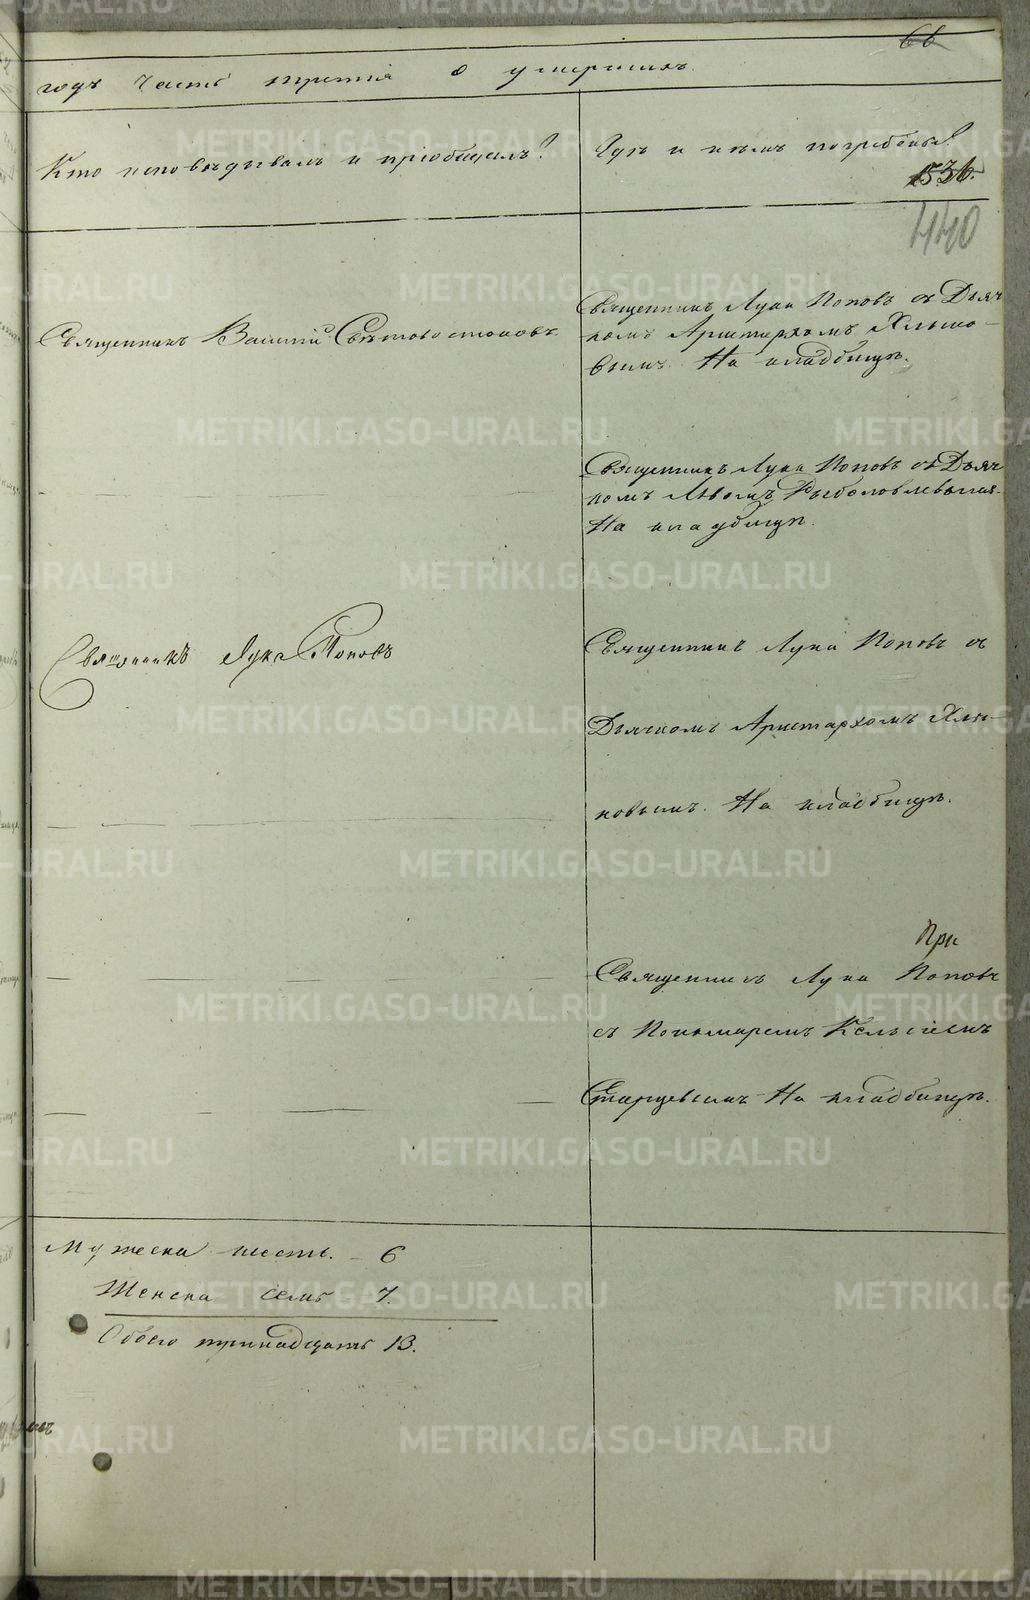 66
годъ часть третія о умершихъ.
Кто исповѣдывалъ и пріобщалъ?
Гдѣ и кѣмъ погребены?
1536.
440
Священникъ Василій Свѣтовостоковъ
Священникъ Лука Поповъ съ Дьяч
комъ Аристархомъ Хлыно-
вымъ. На кладбищѣ.
Священникъ Лука Поповъ съ Дьяч
комъ Львомъ
На кладбищѣ.
Священникъ Лука Поповъ
Священникъ Лука Поповъ съ
Дьячкомъ Аристархомъ Хлы-
новымъ. На кладбищѣ.
При
Священникъ Лука Поповъ
съ Пономаремъ Кельсіемъ
Старцевымъ На кладбищѣ.
Мужеска шесть. 6
Женска семь 7.
Обоего тринадцать 13.
METRIKI.GASO-URAL.RU